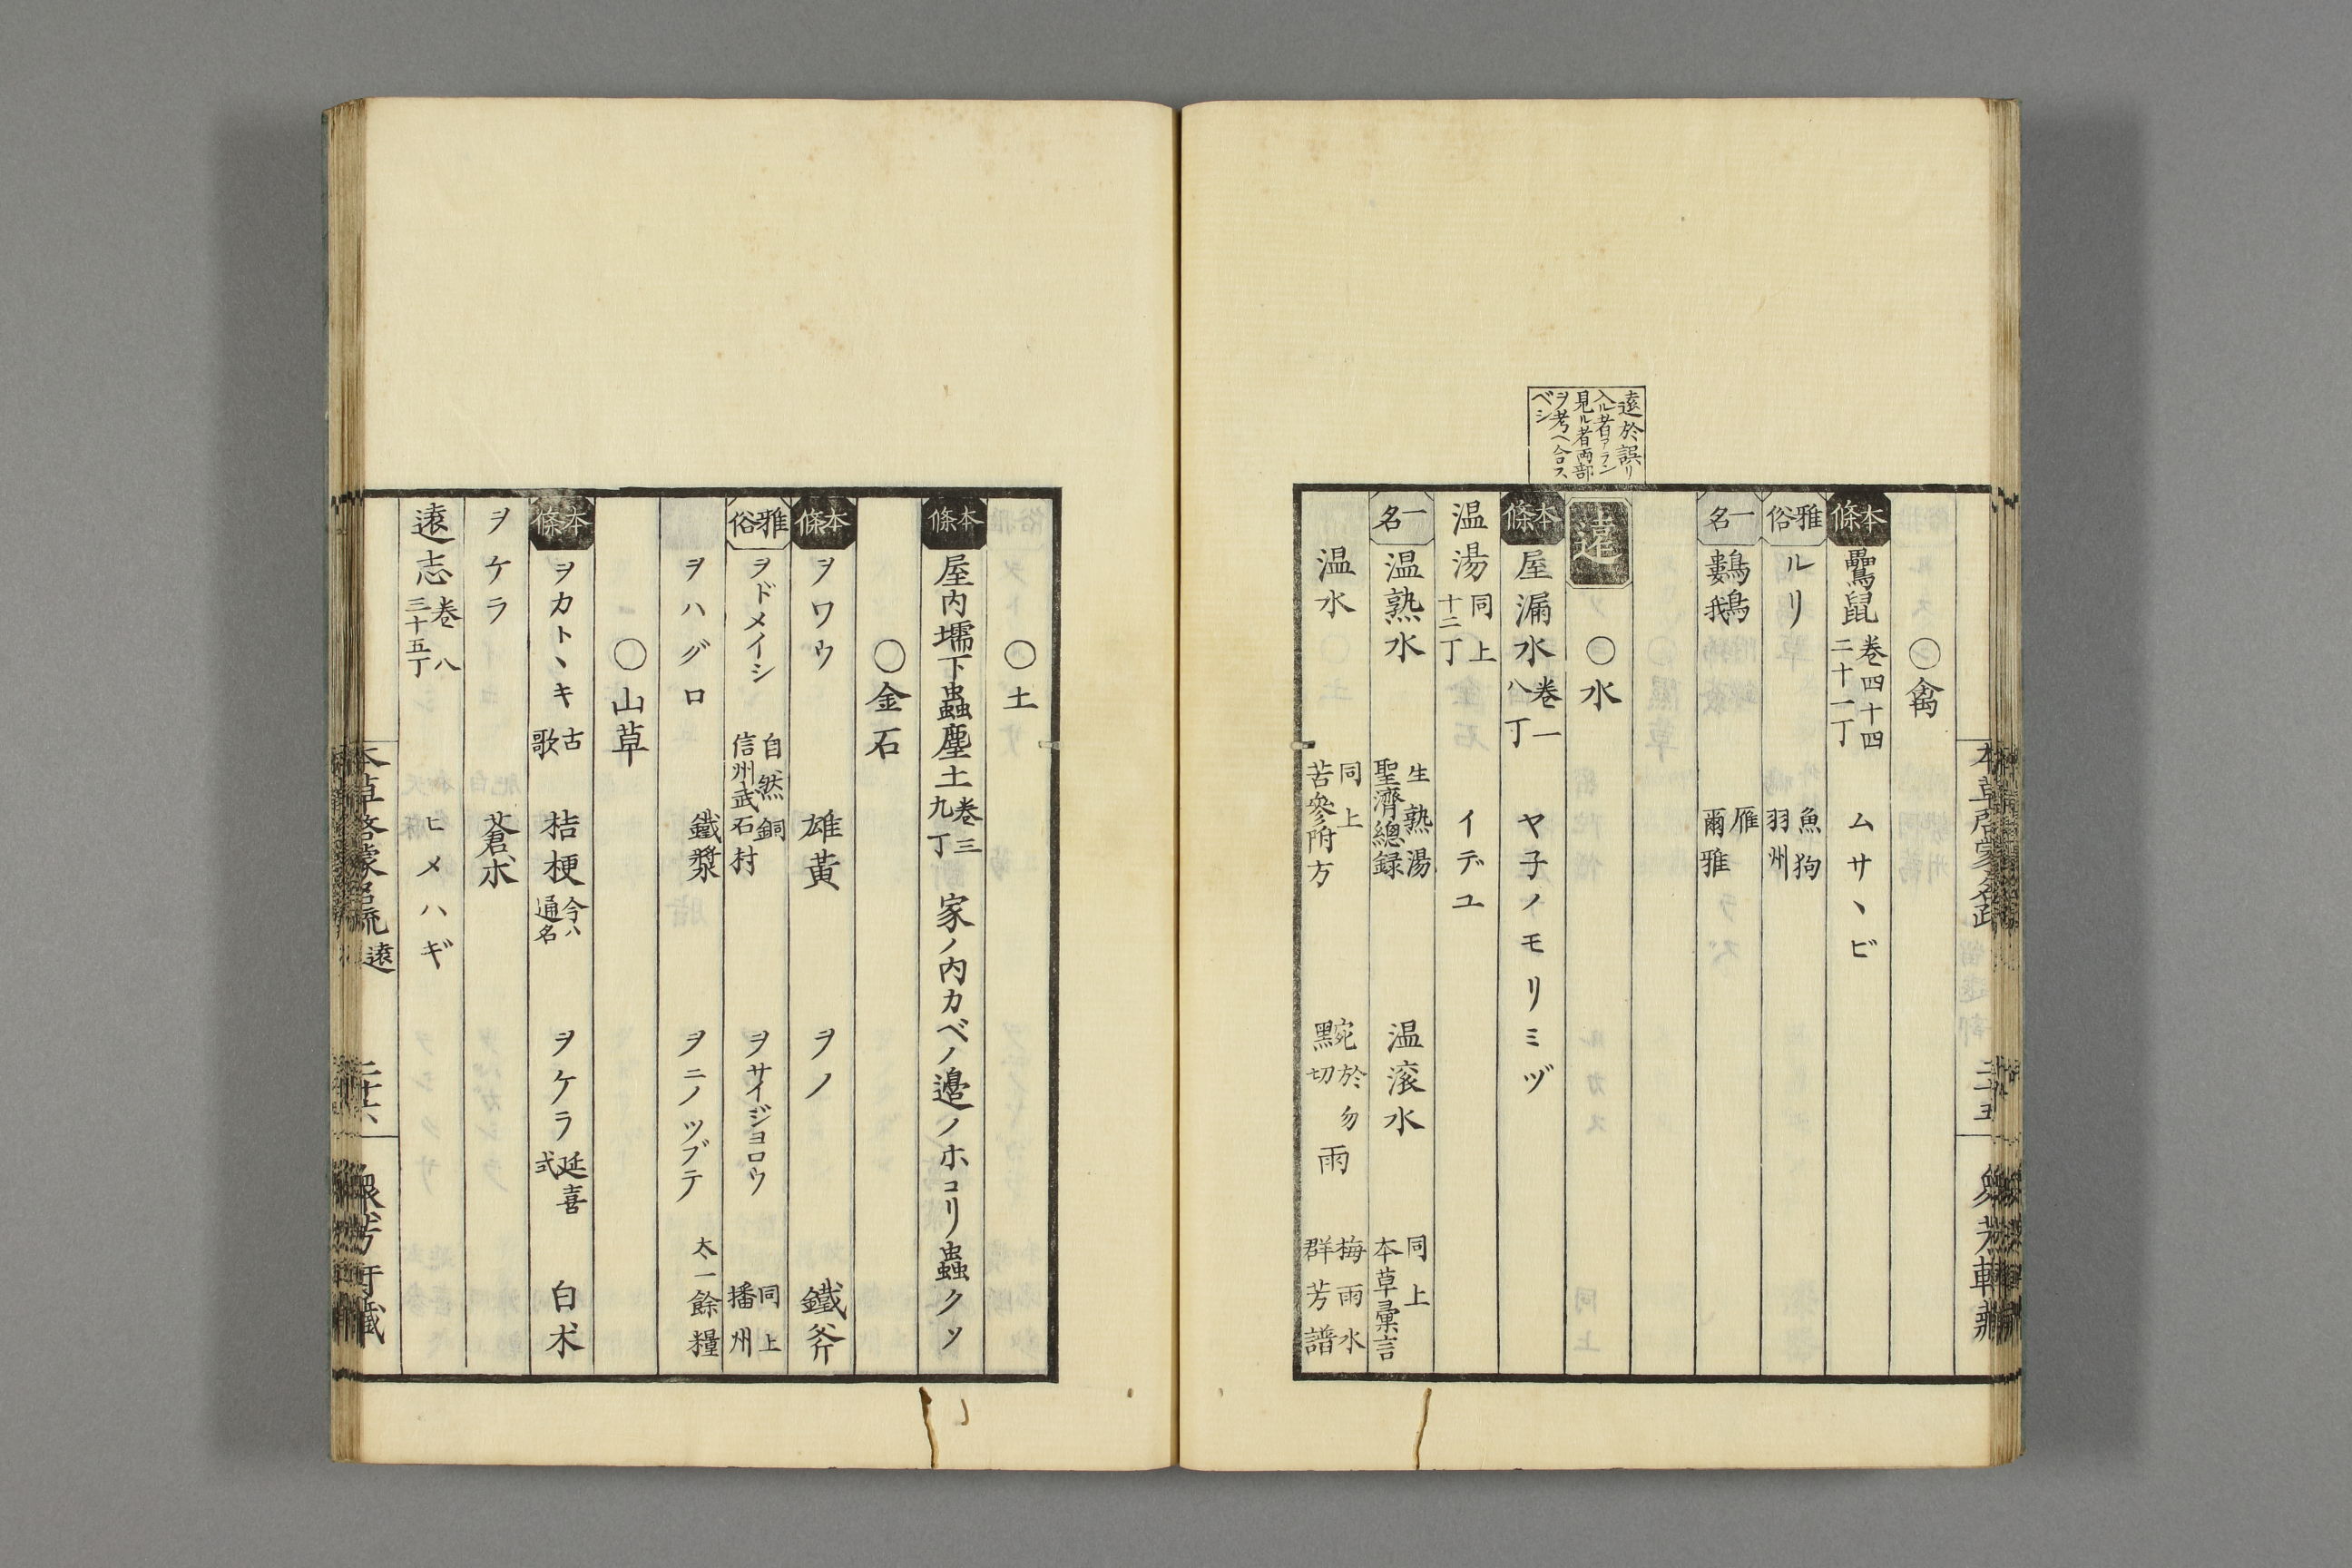 〇禽
本條 鸓鼠 卷四十四 二十一丁 ムサヽビ
雅俗 ルリ 魚狗 羽州
一名 鷜鵝 雁 爾雅
遠於誤リ
入ル者アラン
見ル者両部
ヲ考ヘ合ス
ベシ
遠 〇水
本條 屋漏水 卷一 八丁 ヤ子ノモリミヅ
温湯 同上 十二丁 イデユ
一名 温熟水 生熟湯 聖濟總録 温滾水 同上 本草彙言
温水 同上 苦參附方 黦 宛於勿切 雨 梅雨水 群芳譜
本草啓蒙名疏 二十五 衆芳軒藏
〇土
本條 屋内壖下蟲塵土 卷三 九丁 家ノ内カベノ邉ノホコリ蟲クソ
〇金石
本條 ヲワウ 雄黄 ヲノ 鐵斧
雅俗 ヲドメイシ 自然銅 信州武石村 ヲサイジヨロウ 同上 播州
ヲハグロ 鐵漿 ヲニノツブテ 太一餘糧
〇山草
本條 ヲカトヽキ 古歌 桔梗 今ハ通名 ヲケラ 延喜式 白朮
ヲケラ 蒼朮
遠志 卷八 三十五丁 ヒメハギ
本草啓蒙名疏 遠 二十六 衆芳軒藏